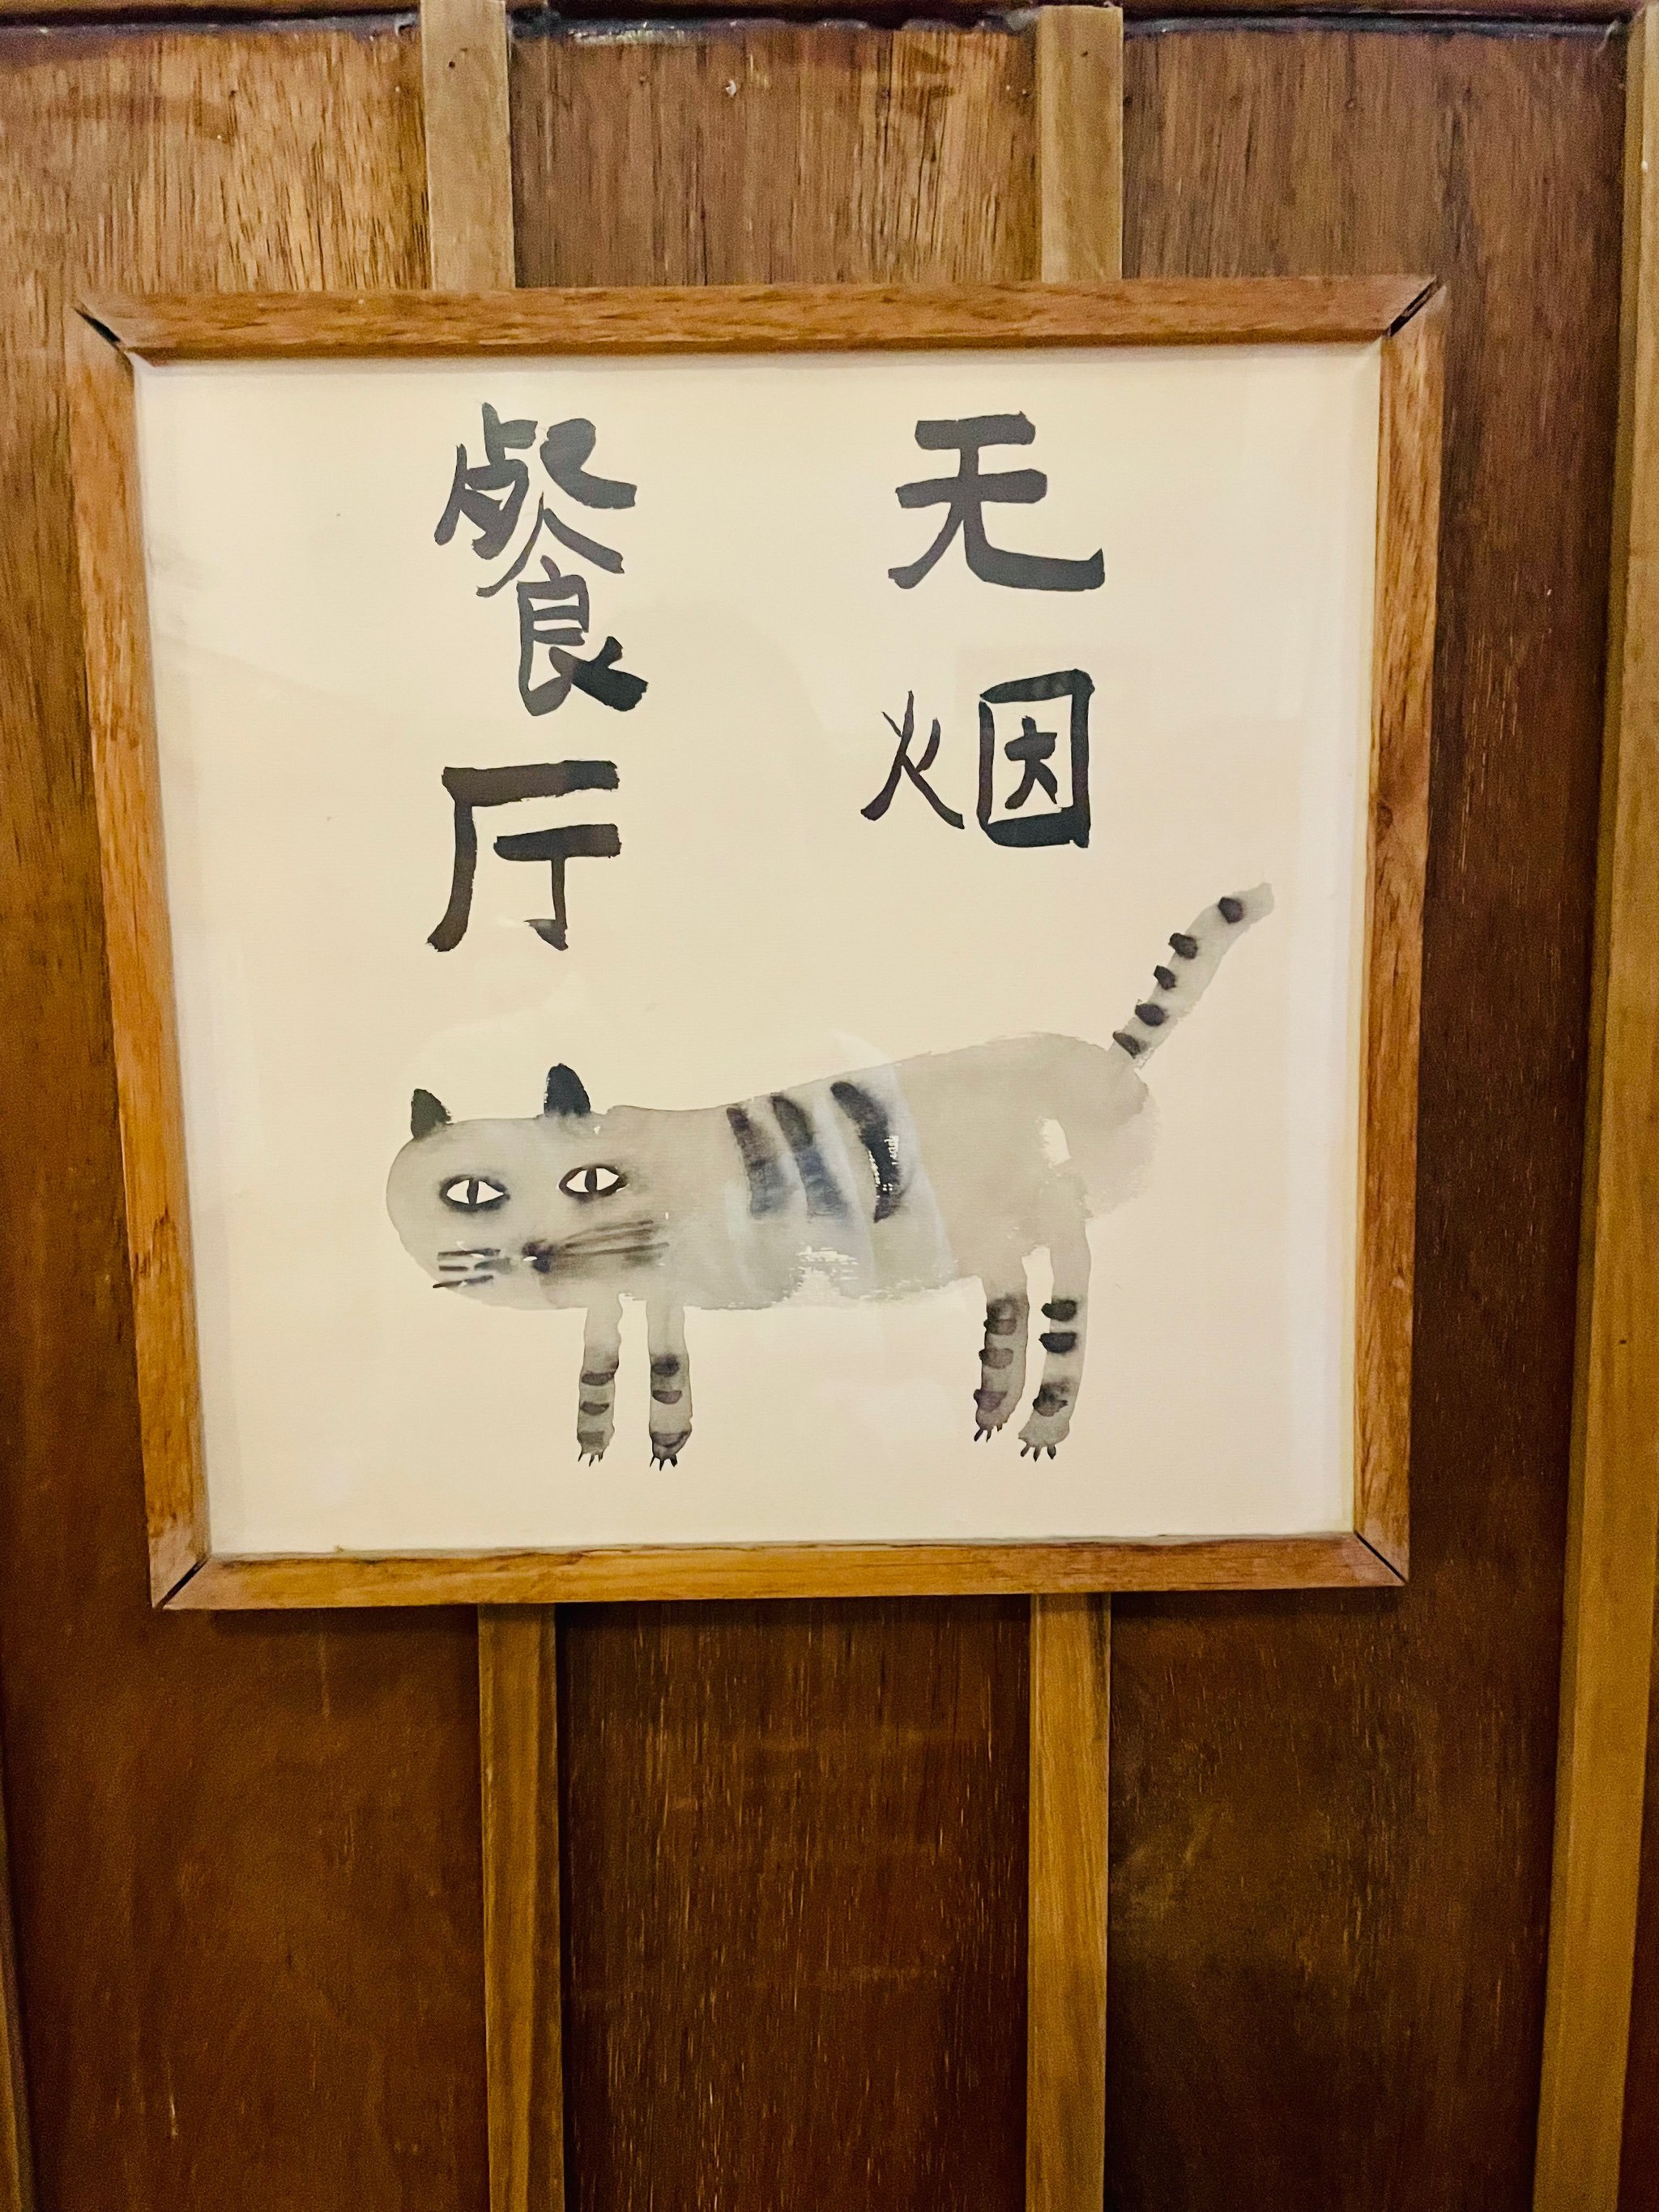 无烟
餐厅